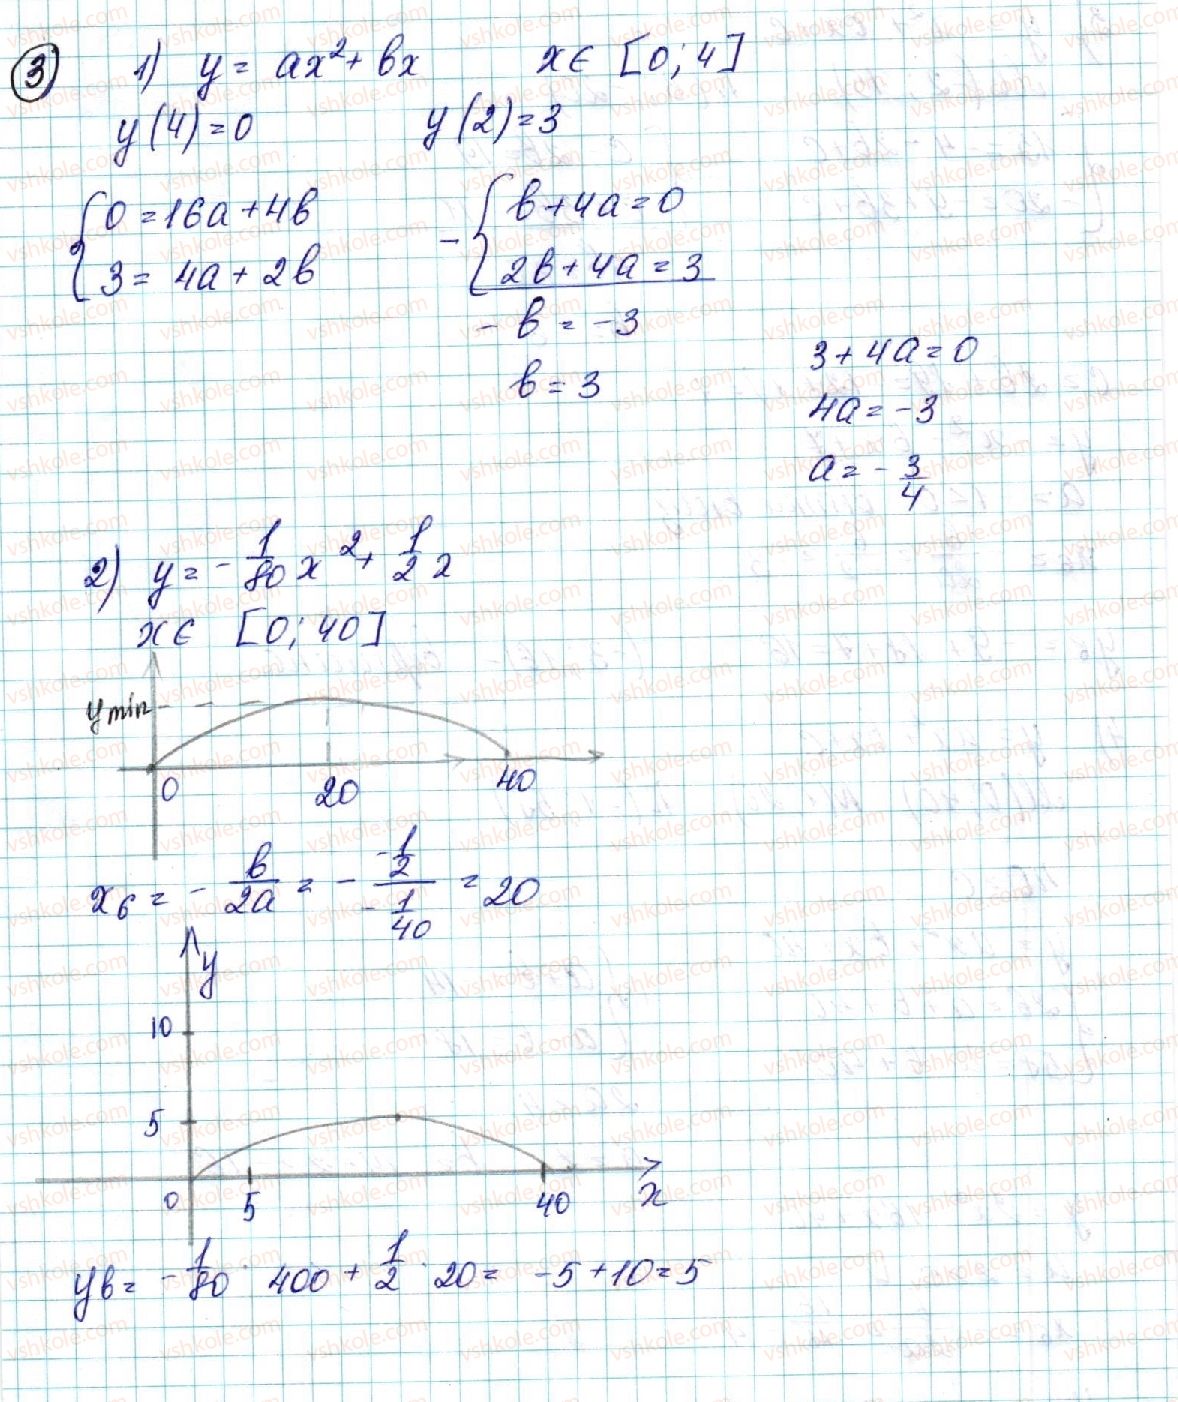 3
1) y = ax² + bx    x ∈ [0; 4]
y(4) = 0    y(2) = 3
{ 0 = 16a + 4b    - { b + 4a = 0
{ 3 = 4a + 2b    { 2b + 4a = 3
- b = -3
b = 3
3 + 4a = 0
4a = -3
a = - 3/4
2) y = - 1/80 x² + 1/2 x
x ∈ [0; 40]
y min
0    20    40
xв = - b/2a = - (-1/2)/(-1/40) = 20
y
10
5
0    5    40    x
yв = - 1/80 · 400 + 1/2 · 20 = -5 + 10 = 5
vshkole.com